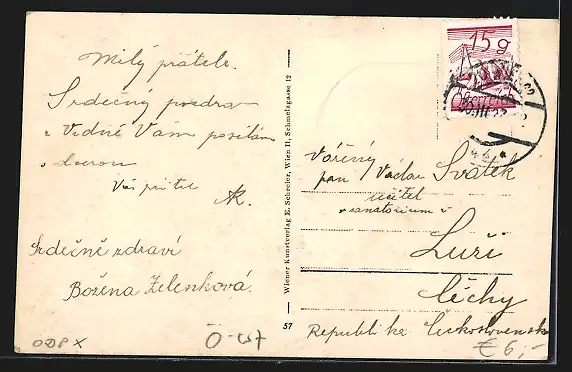 Milý příteli.
Srdečný pozdrav
z Vídně Vám posílám
Váš přítel
Srdečně zdraví
Božena Zelenková.
ODPX
Wiener Kunstverlag E. Schreier, Wien II, Schmelzgasse 12
57
Ö-457
15g
Österreich
Vážený
pan Václav Svátek
učitel
v sanatorium v
Luži
Čechy
Republika Československá
€ 6,-